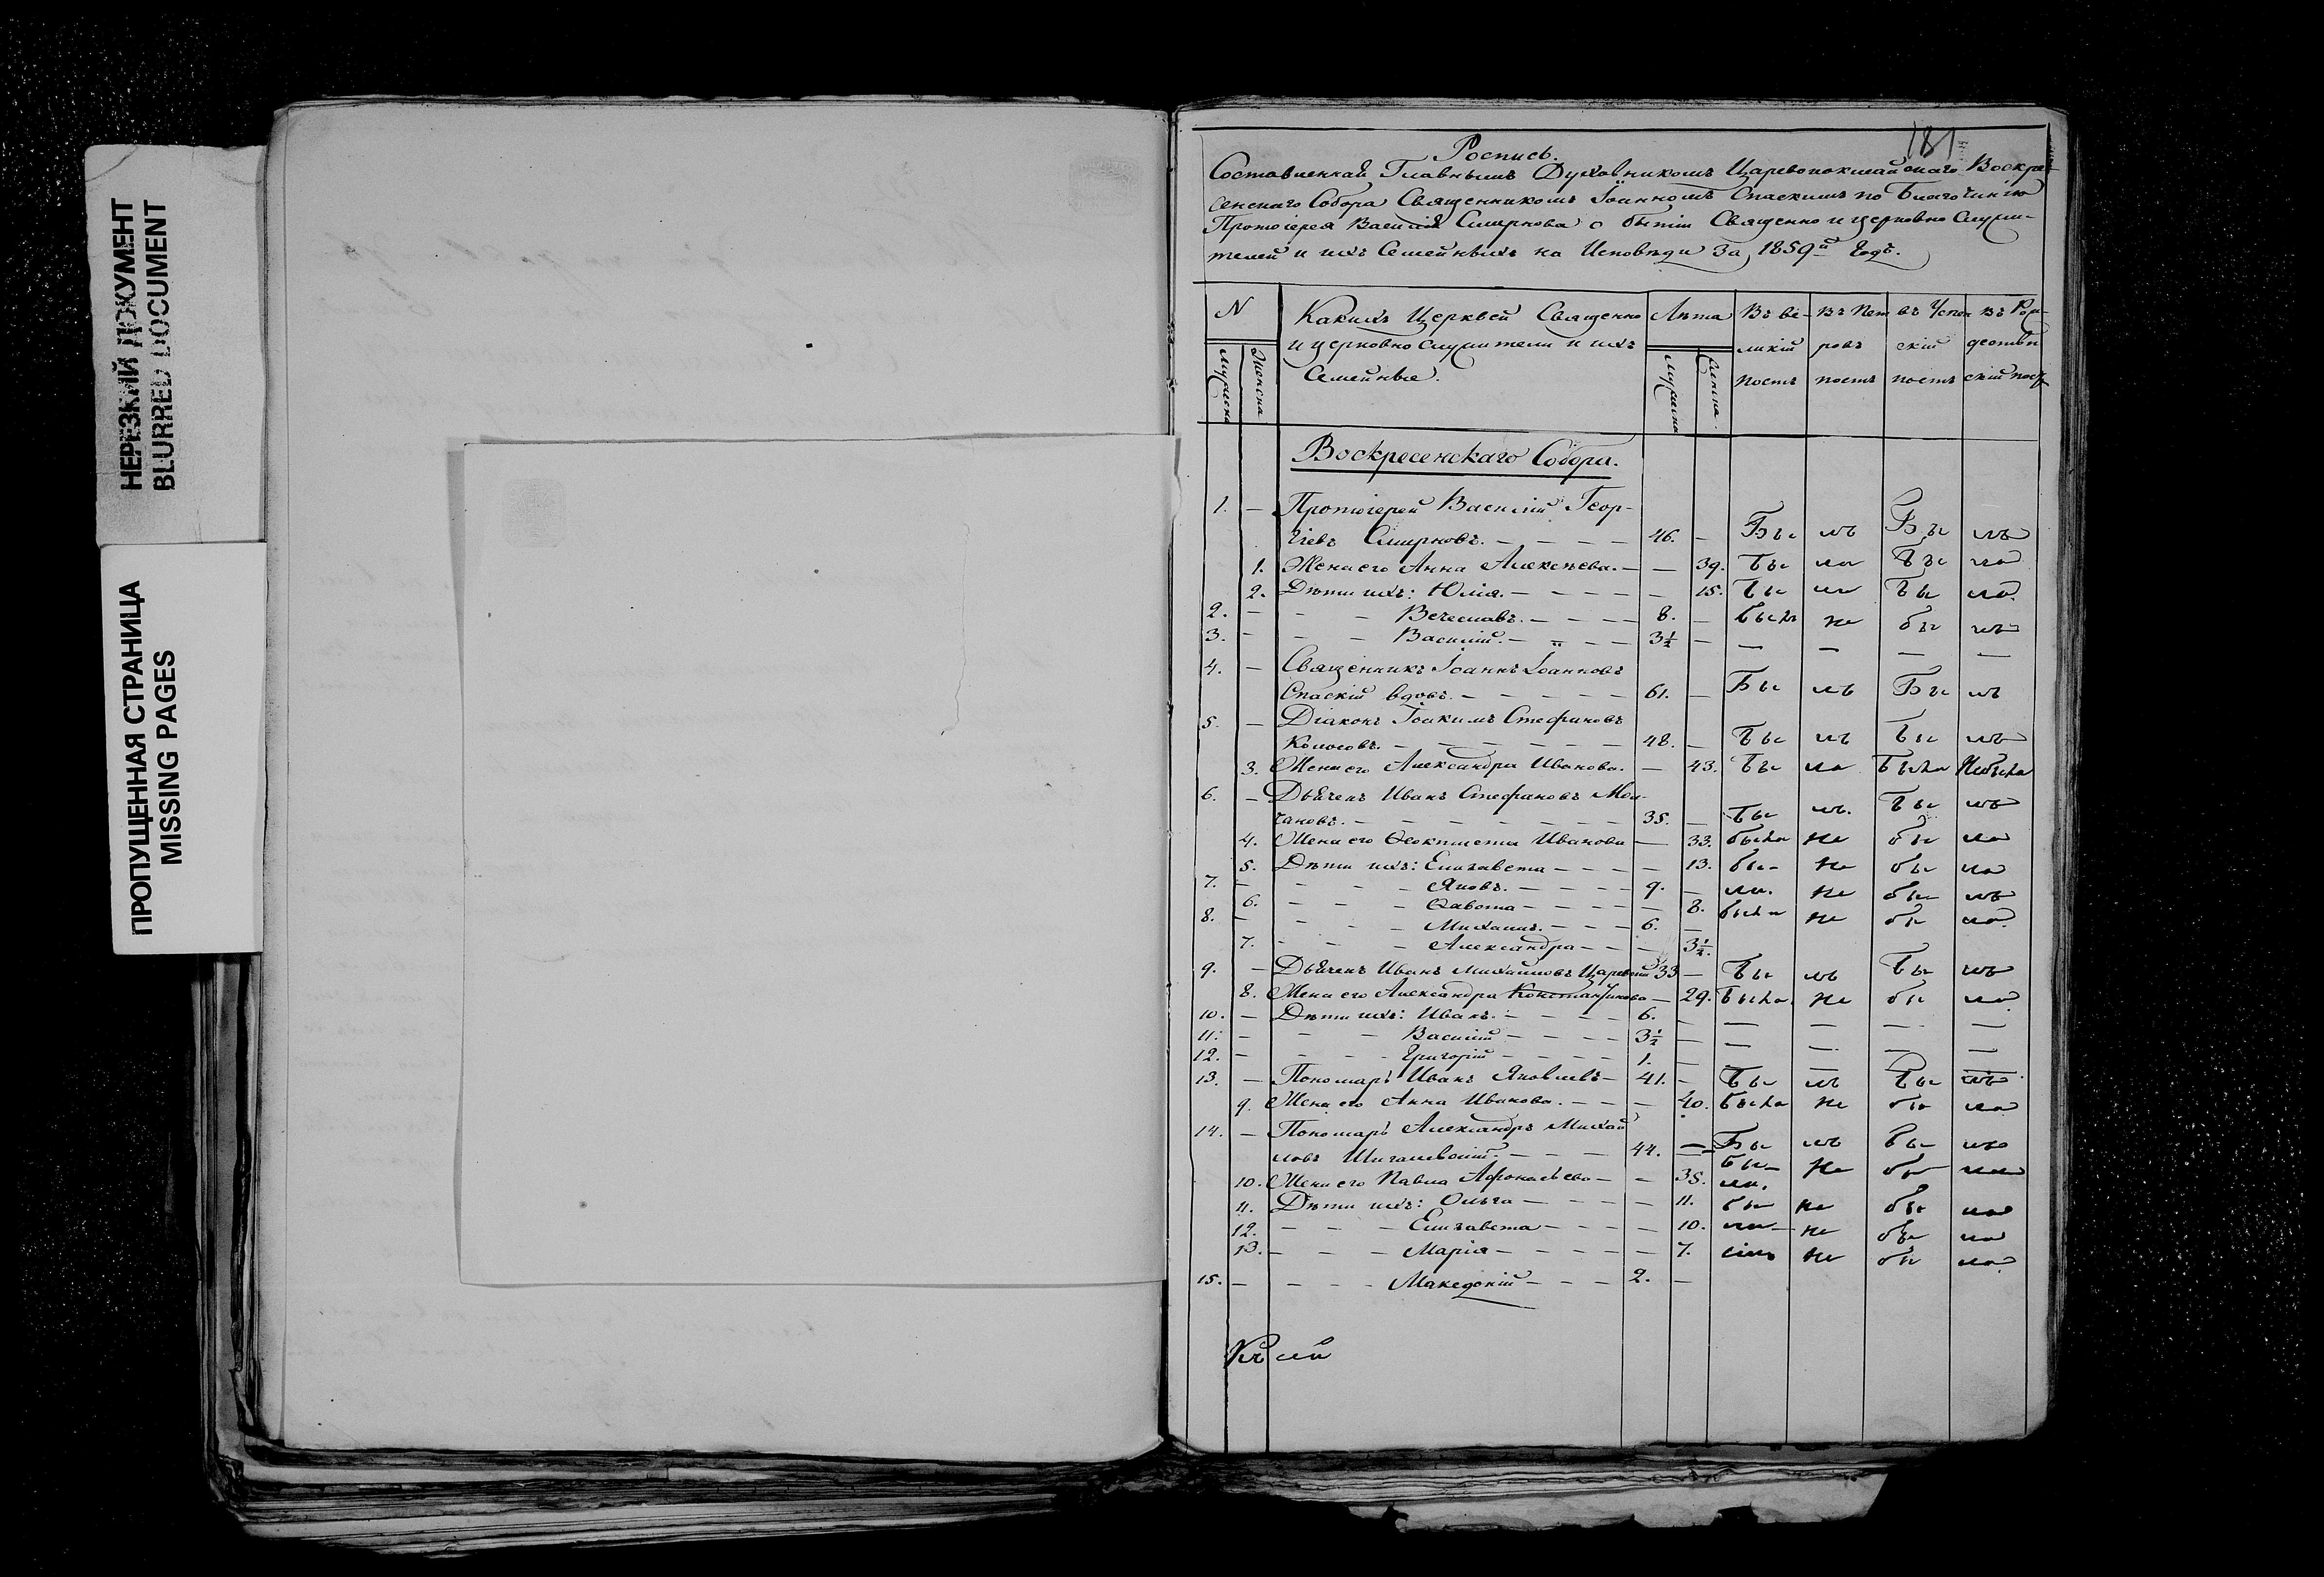 НЕРЕЗКИЙ ДОКУМЕНТ
BLURRED DOCUMENT
ПРОПУЩЕННАЯ СТРАНИЦА
MISSING PAGES
181
Роспись.
Составленная Главнымъ Духовникомъ Царевококшайскаго Воскре-
сенскаго Собора Священникомъ Іоанномъ Спаскимъ по Благочинію
Протоіерея Василія Смирнова о бытіи Священно и церковно служи-
телей и ихъ Семейныхъ на Исповѣди За 1859й Годъ.
N Какихъ Церквей Священно Лѣта Въ ве- Въ Пет въ Успен въ Рож-
и церковно служители и ихъ ликій ровъ скій дественъ
Семейные. постъ постъ постъ скій постъ
Мужеска Женска Мужеска Женска
Воскресенскаго Собора.
1. — Протоіерей Василій Геор-
гіевъ Смирновъ. — 46. — Бы лъ Бы лъ
1. Жена его Анна Алексѣева. — — 39. Бы ла Бы ла
2. Дѣти ихъ: Юлія. — — 15. Бы ла Бы ла.
2. — Вечеславъ. — 8. — Былъ не бы лъ
3. — Василій. — 3½ — — — — —
4. — Священникъ Іоаннъ Іоанновъ
Спаскій вдовъ. — 61. — Бы лъ Бы лъ
5. — Діаконъ Іоакимъ Стефановъ
Колосовъ. — 48. — Бы лъ Бы лъ
3. Жена его Александра Иванова. — 43. Бы ла Была Небыла
6. — Дьячекъ Иванъ Стефановъ Мол-
чановъ. — 35. — Бы лъ. Бы лъ
4. Жена его Феоктиста Иванова — 33. была не бы ла
5. Дѣти ихъ: Елизавета — — 13. бы- не бы ла
7. — Яковъ. — 9. — ли. не бы лъ
6. — — 8. была не бы ла
8. — Михаилъ. — 6. —
7. — Александра — — 3½.
9. — Дьячекъ Иванъ Михайловъ 33 — Бы лъ Бы лъ
8. Жена его Александра Константинова — 29. Была не бы ла
10. — Дѣти ихъ: Иванъ. — 6. — — — — —
11. — Василій — 3½ — — — — —
12. — Григорій — 1. — — — —
13. — Пономарь Иванъ Яковлевъ — 41. — Бы лъ Бы лъ
9. Жена его Анна Иванова. — — 40. Была не бы ла
14. — Пономарь Александръ Михай
ловъ — 44. — Бы лъ Бы лъ
10. Жена его Павла Афонасьева — — 35. Бы- ли. не бы ла
11. Дѣти ихъ: Ольга — — 11. бы не бы ла
12. — Елизавета — — 10. ли не бы ла
13. — Марія — — 7. не бы ла
15. — Македоній — 2. —